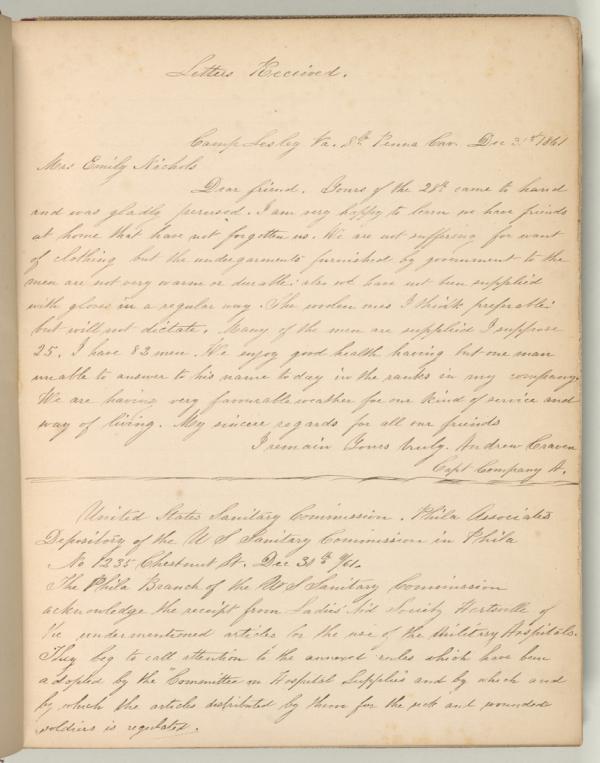 Letters Received.
Camp Lesley Va. 8th Penna Cav. Dec 31st 1861
Mrs Emily Nichols
Dear friend. Yours of the 28th came to hand
and was gladly perused. I am very happy to learn we have friends
at home that have not forgotten us. We are not suffering for want
of clothing but the undergarments furnished by government to the
men are not very warm or durable: also we have not been supplied
with gloves in a regular way. The woolen ones I think preferable:
but will not dictate. Many of the men are supplied I suppose
25. I have 83 men. We enjoy good health having but one man
unable to answer to his name today in the ranks in my company.
We are having very favourable weather for our kind of service and
way of living. My sincere regards for all our friends
I remain Yours truly. Andrew Craven
Capt Company A.
United States Sanitary Commission. Phila Associates
Depository of the U S Sanitary Commission in Phila
No 1235 Chestnut St. Dec 30th /61.
The Phila Branch of the U S Sanitary Commission
acknowledge the receipt from Ladies' Aid Society Hartsville of
the undermentioned articles for the use of the Military Hospitals.
They beg to call attention to the annexed rules which have been
adopted by the "Committee on Hospital Supplies and by which and
by which the articles distributed by them for the sick and wounded
soldiers is regulated.